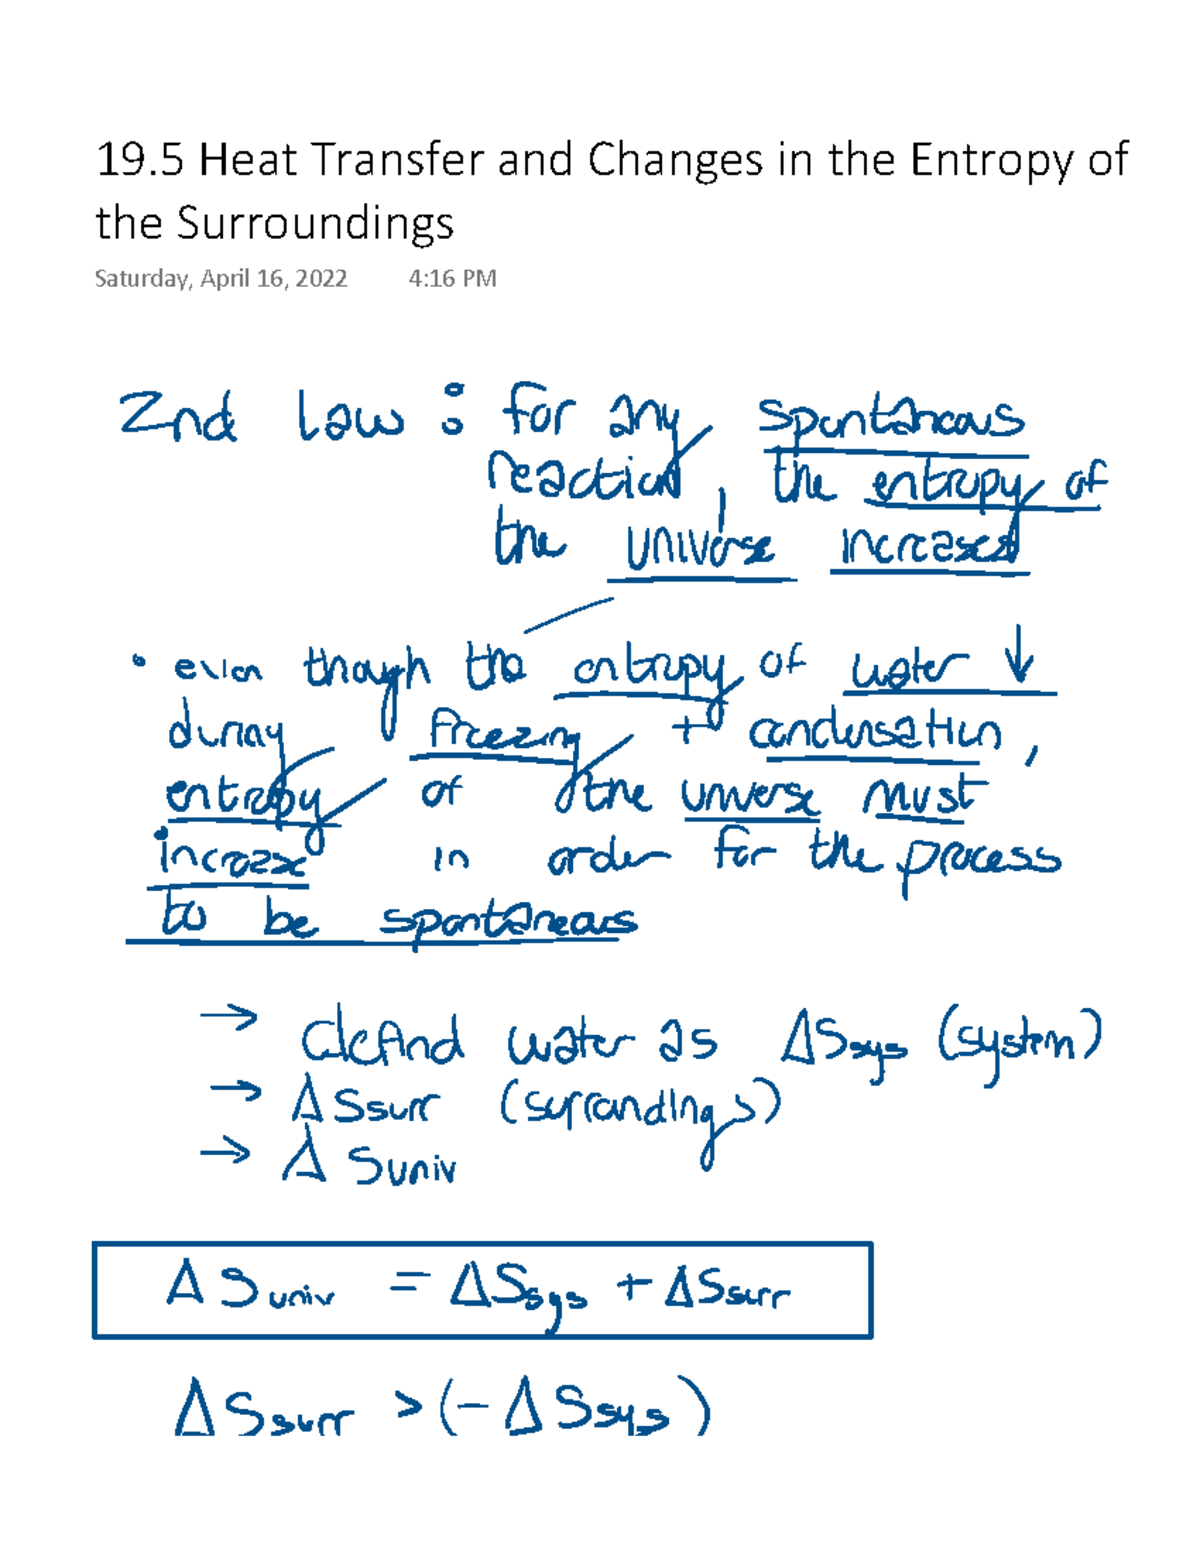 19.5 Heat Transfer and Changes in the Entropy of
the Surroundings
Saturday, April 16, 2022 4:16 PM
2nd Law : for any spontaneous
reaction, the entropy of
the universe increases
• even though the entropy of water ↓
during freezing + condensation,
entropy of the universe must
increase in order for the process
to be spontaneous
→ defind water as ΔSsys (system)
→ ΔSsurr (surrandings)
→ ΔSuniv
ΔSuniv = ΔSsys + ΔSsurr
ΔSsurr > (- ΔSsys)